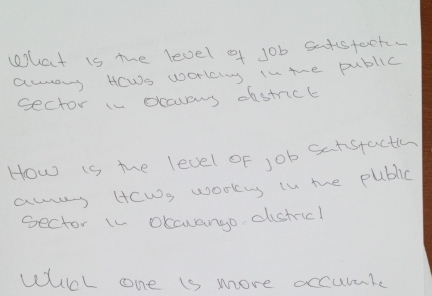 What is the level of job satisfaction
among HCWs working in the public
sector in Okavang district
How is the level of job satisfaction
among HCWs working in the public
sector in Okavango district
Which one is more accurate